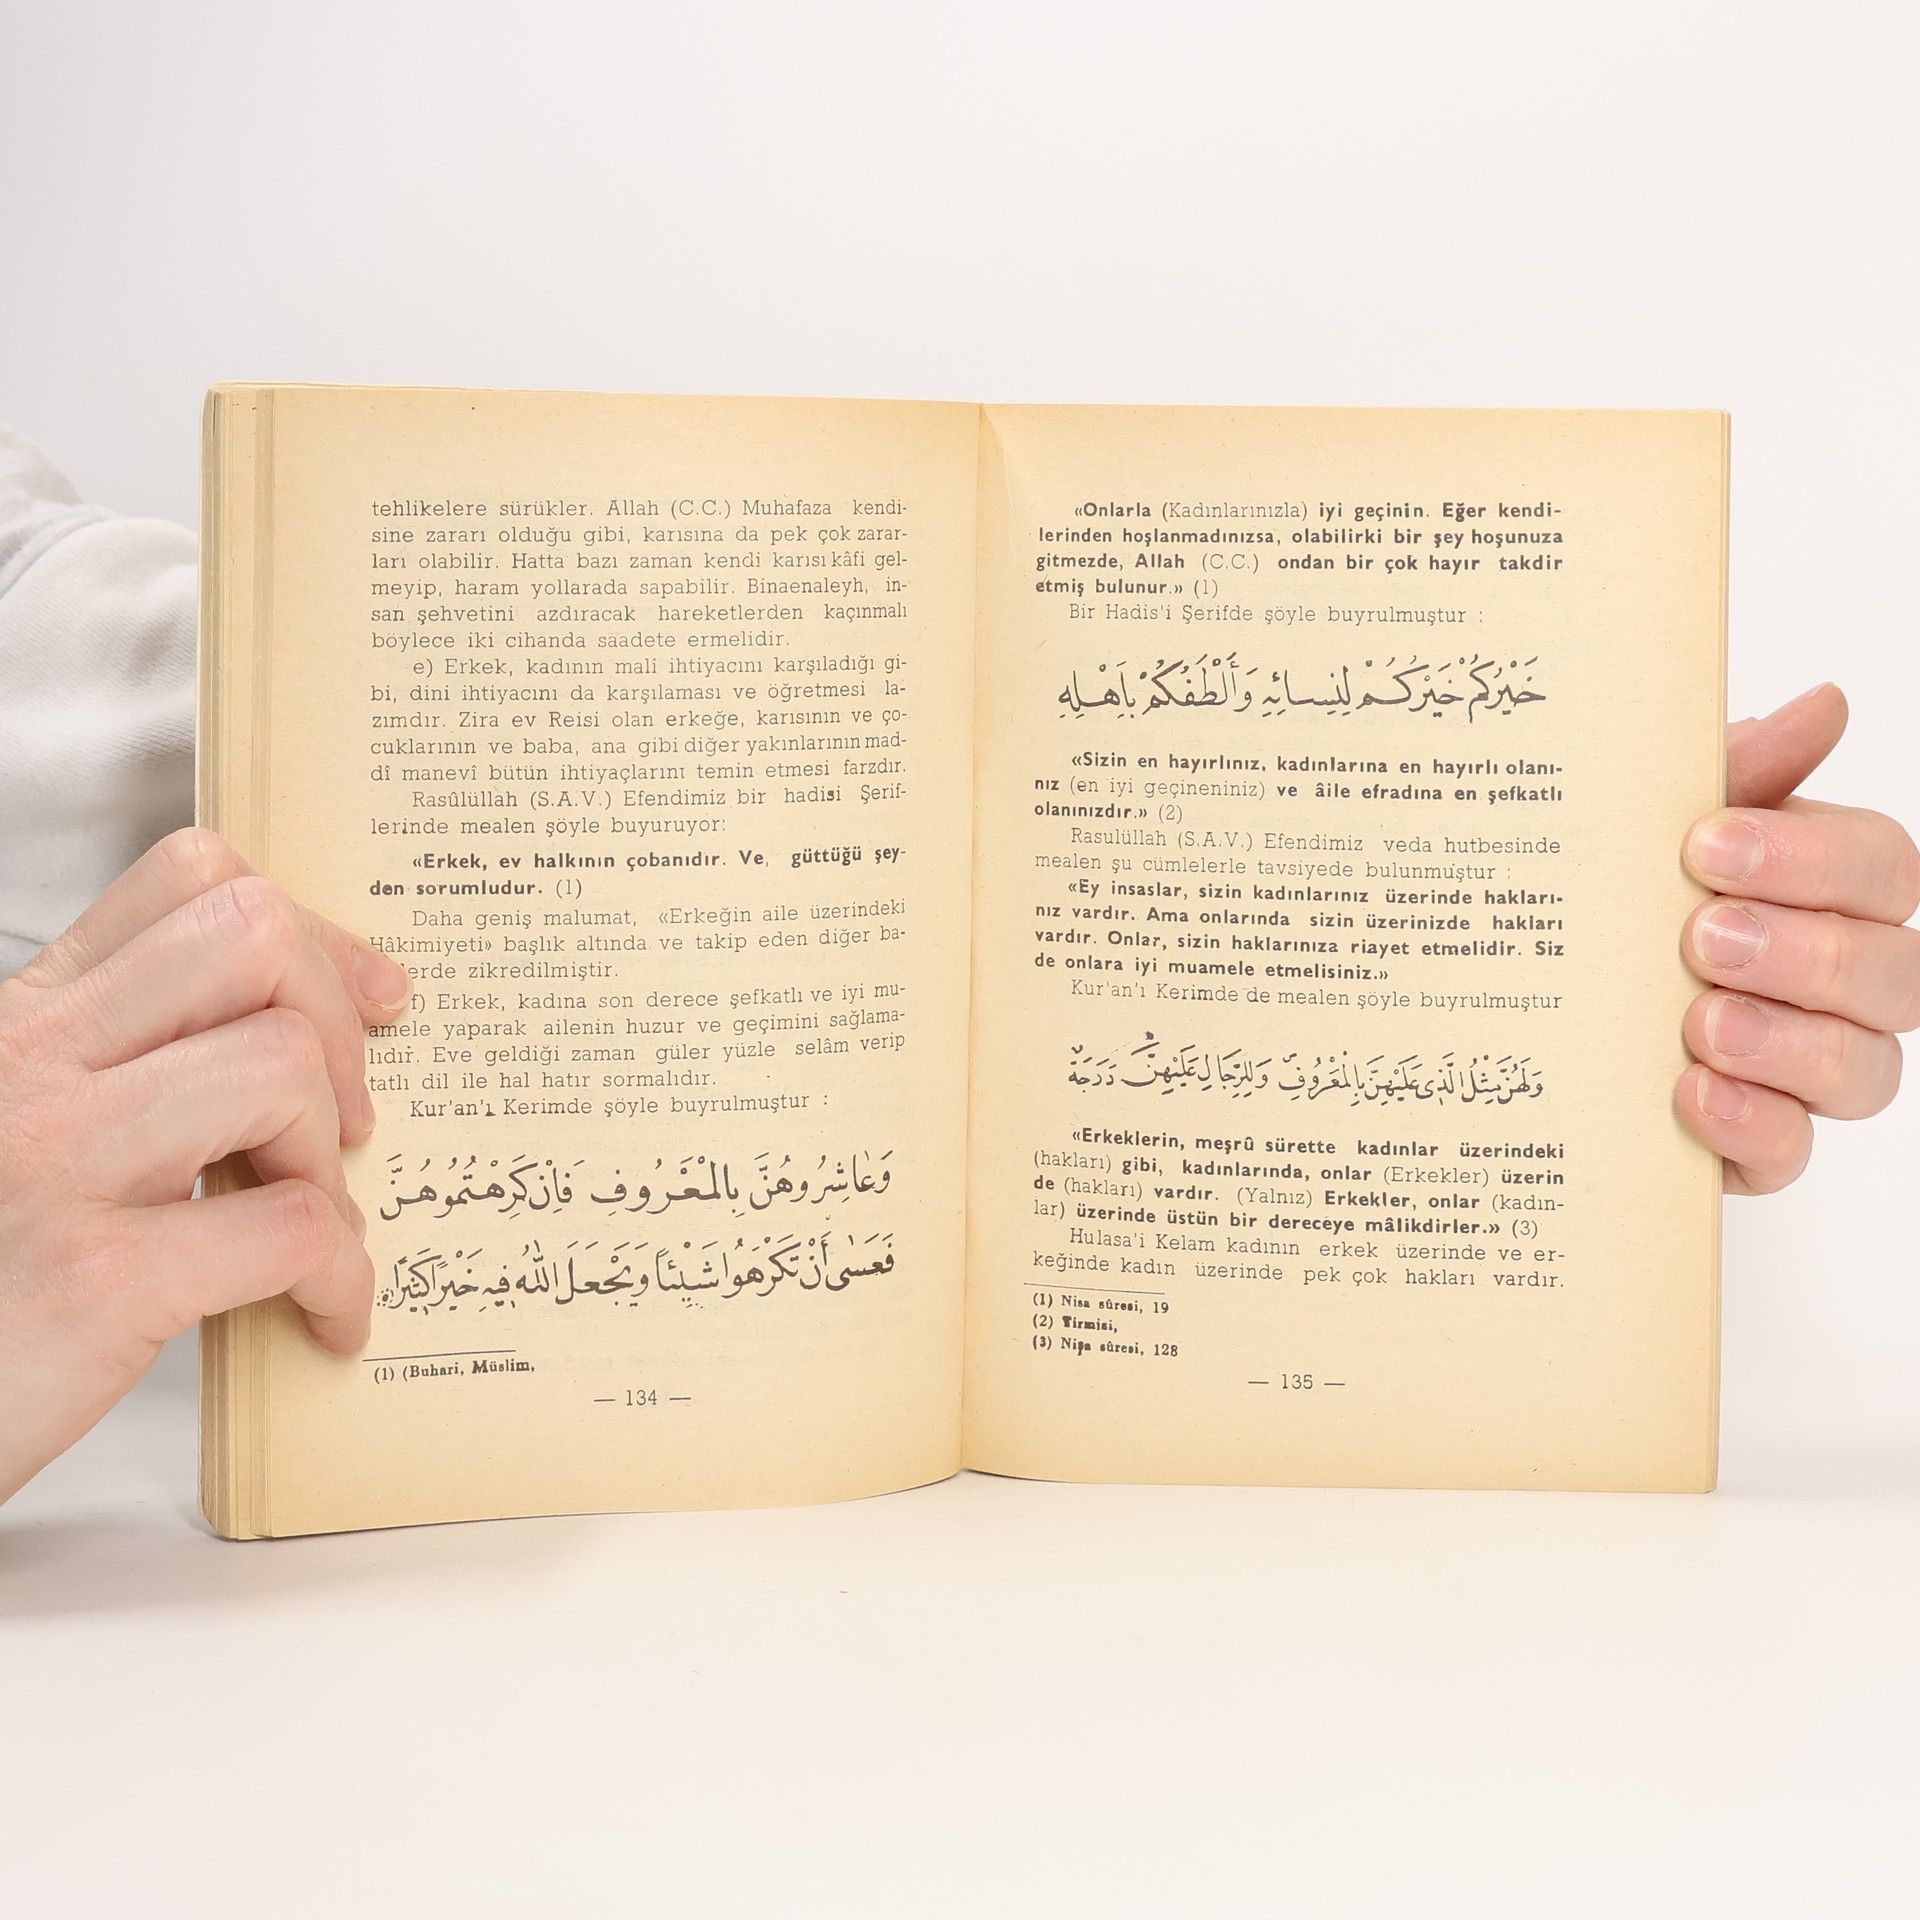 tehlikelere sürükler. Allah (C.C.) Muhafaza kendi-
sine zararı olduğu gibi, karısına da pek çok zarar-
ları olabilir. Hatta bazı zaman kendi karısı kâfi gel-
meyip, haram yollarada sapabilir. Binaenaleyh, in-
san şehvetini azdıracak hareketlerden kaçınmalı
böylece iki cihanda saadete ermelidir.
e) Erkek, kadının malî ihtiyacını karşıladığı gi-
bi, dini ihtiyacını da karşılaması ve öğretmesi la-
zımdır. Zira ev Reisi olan erkeğe, karısının ve ço-
cuklarının ve baba, ana gibi diğer yakınlarının mad-
dî manevî bütün ihtiyaçlarını temin etmesi farzdır.
Rasûlüllah (S.A.V.) Efendimiz bir hadisi Şerif-
lerinde mealen şöyle buyuruyor:
«Erkek, ev halkının çobanıdır. Ve, güttüğü şey-
den sorumludur. (1)
Daha geniş malumat, «Erkeğin aile üzerindeki
Hâkimiyeti» başlık altında ve takip eden diğer ba-
lerde zikredilmiştir.
f) Erkek, kadına son derece şefkatlı ve iyi mu-
amele yaparak ailenin huzur ve geçimini sağlama-
lıdır. Eve geldiği zaman güler yüzle selâm verip
tatlı dil ile hal hatır sormalıdır.
Kur'an'ı Kerimde şöyle buyrulmuştur :
وَعَاشِرُوهُنَّ بِالْمَعْرُوفِ فَاِنْ كَرِهْتُمُوهُنَّ
فَعَسٰى أَنْ تَكْرَهُوا شَيْئًا وَيَجْعَلَ اللّٰهُ فِيهِ خَيْرًا كَثِيرًا
(1) (Buhari, Müslim,
— 134 —
«Onlarla (Kadınlarınızla) iyi geçinin. Eğer kendi-
lerinden hoşlanmadınızsa, olabilirki bir şey hoşunuza
gitmezde, Allah (C.C.) ondan bir çok hayır takdir
etmiş bulunur.» (1)
Bir Hadis'i Şerifde şöyle buyrulmuştur :
خَيْرُكُمْ خَيْرُكُمْ لِنِسائِهِ وَأَلْطَفُكُمْ بِاَهْلِهِ
«Sizin en hayırlınız, kadınlarına en hayırlı olanı-
nız (en iyi geçineniniz) ve âile efradına en şefkatlı
olanınızdır.» (2)
Rasulüllah (S.A.V.) Efendimiz veda hutbesinde
mealen şu cümlelerle tavsiyede bulunmuştur :
«Ey insaslar, sizin kadınlarınız üzerinde hakları-
nız vardır. Ama onlarında sizin üzerinizde hakları
vardır. Onlar, sizin haklarınıza riayet etmelidir. Siz
de onlara iyi muamele etmelisiniz.»
Kur'an'ı Kerimde de mealen şöyle buyrulmuştur
وَلَهُنَّ مِثْلُ الَّذِى عَلَيْهِنَّ بِالْمَعْرُوفِ وَلِلرِّجَالِ عَلَيْهِنَّ دَرَجَةٌ
«Erkeklerin, meşrû sürette kadınlar üzerindeki
(hakları) gibi, kadınlarında, onlar (Erkekler) üzerin
de (hakları) vardır. (Yalnız) Erkekler, onlar (kadın-
lar) üzerinde üstün bir dereceye mâlikdirler.» (3)
Hulasa'i Kelam kadının erkek üzerinde ve er-
keğinde kadın üzerinde pek çok hakları vardır.
(1) Nisa sûresi, 19
(2) Tirmisi,
(3) Nisa sûresi, 128
— 135 —